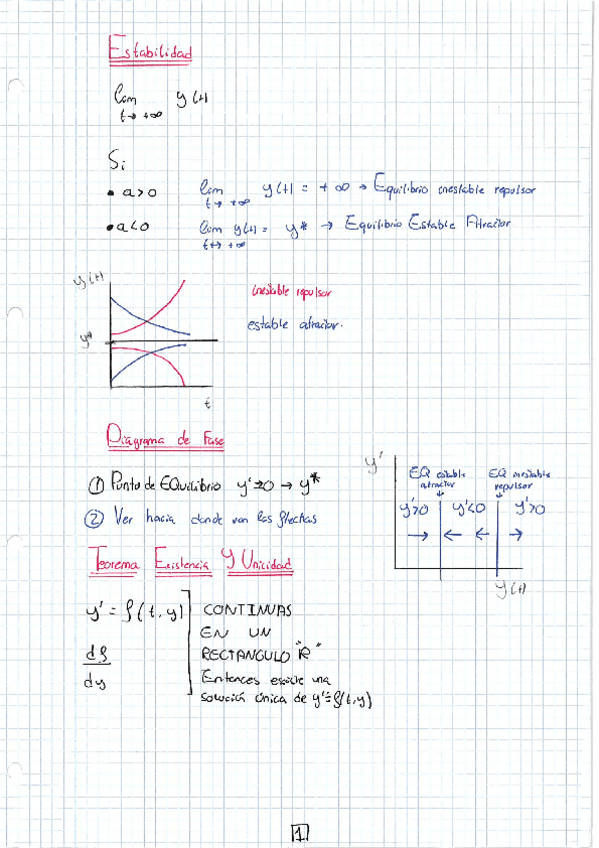 Estabilidad
lim y(t)
t→+∞
Si
• a>0 lim y(t) = +∞ → Equilibrio inestable repulsor
t→+∞
• a<0 lim y(t) = y* → Equilibrio Estable Atractor
t→+∞
y(t)
inestable repulsor
estable atractor.
y*
t
Diagrama de Fase
① Punto de EQuilibrio y'=0 → y*
② Ver hacia donde van las flechas
y'
EQ estable
atractor
EQ inestable
repulsor
y'>0 y'<0 y'>0
→ ← ← →
y(t)
Teorema Existencia Y Unicidad
y' = f(t,y) CONTINUAS
EN UN
df RECTANGULO "R"
dy Entonces existe una
solución única de y'=f(t,y)
1